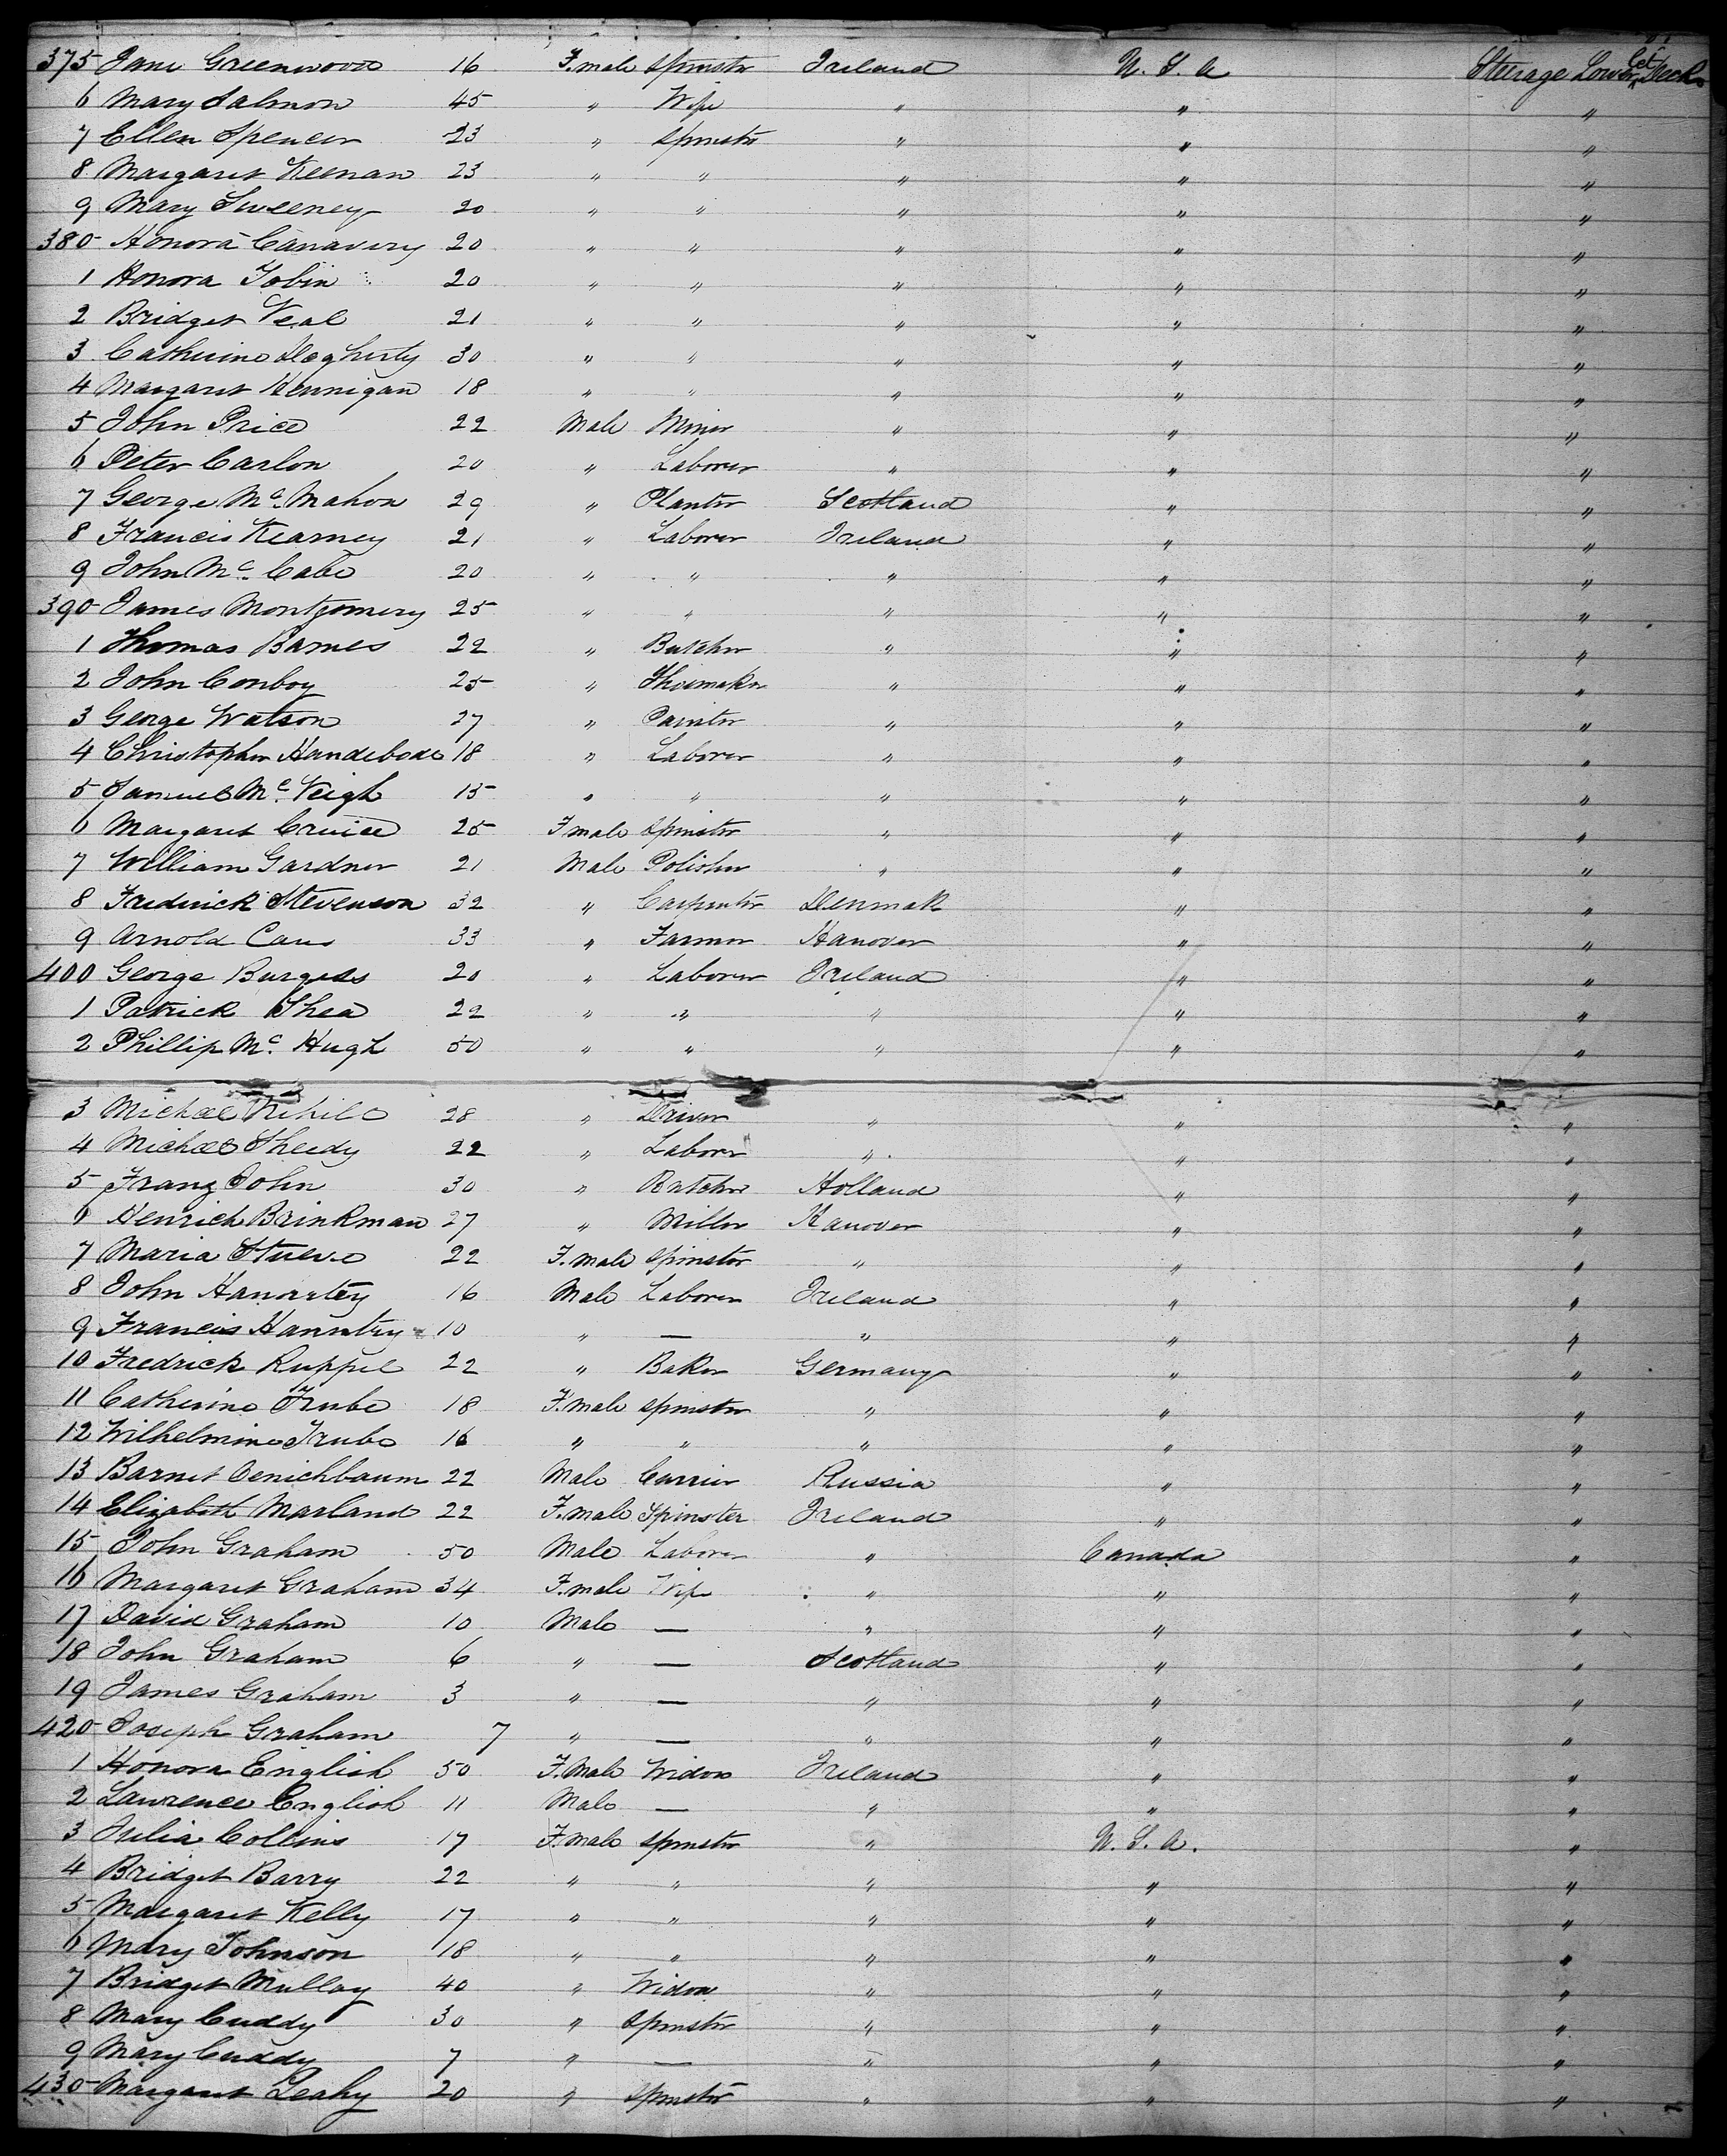 375 Jane Greenwood 16 F.male Spinster Ireland U. S. A Steerage Lower Deck
6 Mary Salmon 45 " Wife " " "
7 Ellen Spencer 23 " Spinster " " "
8 Margaret Keenan 23 " " " " "
9 Mary Sweeney 20 " " " " "
380 Honora Canavery 20 " " " " "
1 Honora Tobin 20 " " " " "
2 Bridget Veal 21 " " " " "
3 Catherine Dogherty 30 " " " " "
4 Margaret Hennigan 18 " " " " "
5 John Price 22 Male Miner " " "
6 Peter Carlon 20 " Laborer " " "
7 George Mc. Mahon 29 " Planter Scotland " "
8 Francis Kearney 21 " Laborer Ireland " "
9 John Mc. Cabe 20 " " " " "
390 James Montgomery 25 " " " " "
1 Thomas Barnes 22 " Butcher " " "
2 John Conboy 25 " Shoemaker " " "
3 George Watson 27 " Painter " " "
4 Christopher Handebode 18 " Laborer " " "
5 Samuel Mc. Veigh 15 " " " " "
6 Margaret Cruice 25 F male Spinster " " "
7 William Gardner 21 Male Polisher " " "
8 Frederick Stevenson 32 " Carpenter Denmark " "
9 Arnold Caus 33 " Farmer Hanover " "
400 George Burgess 20 " Laborer Ireland " "
1 Patrick Shea 22 " " " " "
2 Phillip Mc. Hugh 50 " " " " "
3 Michael Nihile 28 " Driver " " "
4 Michael Sheedy 22 " Laborer " " "
5 Franz John 30 " Butcher Holland " "
6 Henrich Brinkman 27 " Miller Hanover " "
7 Maria Stueve 22 F.male Spinster " " "
8 John Hanratty 16 Male Laborer Ireland " "
9 Francis Hanratty 10 " — " " "
10 Fredrick Ruppel 22 " Baker Germany " "
11 Catherine Trube 18 F.male Spinster " " "
12 Wilhelmine Trube 16 " " " " "
13 Barnet Oenichbaum 22 Male Currier Russia " "
14 Elizabeth Marland 22 F.male Spinster Ireland " "
15 John Graham 50 Male Laborer " Canada "
16 Margaret Graham 34 F.male Wife " " "
17 David Graham 10 Male — " " "
18 John Graham 6 " — Scotland " "
19 James Graham 3 " — " " "
420 Joseph Graham 7 " — " " "
1 Honora English 50 F.male Widow Ireland " "
2 Lawrence English 11 Male — " " "
3 Julia Collins 17 F.male Spinster " U. S. A. "
4 Bridget Barry 22 " " " " "
5 Margaret Kelly 17 " " " " "
6 Mary Johnson 18 " " " " "
7 Bridget Mulloy 40 " Widow " " "
8 Mary Cuddy 30 " Spinster " " "
9 Mary Cuddy 7 " — " " "
430 Margaret Leahy 20 " Spinster " " "